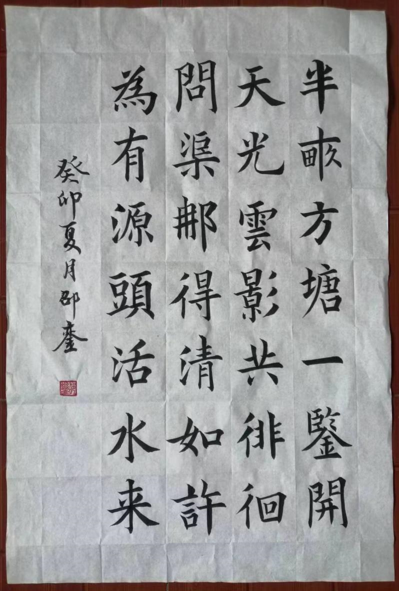 半畝方塘一鑒開
天光雲影共徘徊
問渠那得清如許
為有源頭活水来
癸卯夏月邵奎